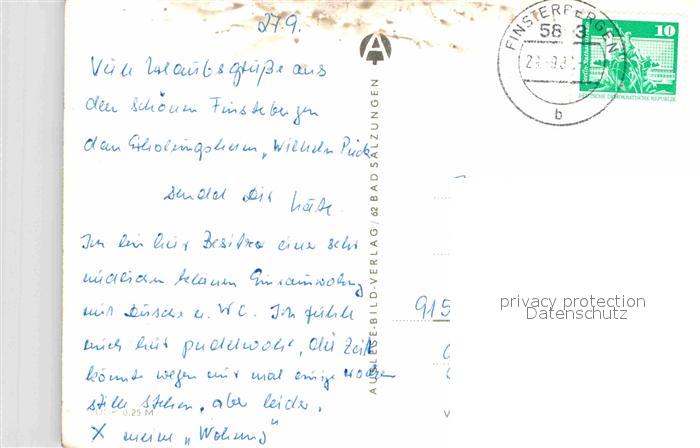 27.9.
Viele Urlaubsgrüße aus
dem schönen Finsterbergen
dem Erholungsheim „Wilhelm Pieck
sendet Dir Käte.
Ich bin hier Besitzer einer sehr
niedlichen kleinen Einraumwohng
mit Dusche u. WC. Ich fühle
mich hier pudelwohl, die Zeit
könnte wegen mir mal einige Wochen
stille stehen, aber leider.
X meine „Wohnung"
0,25 M
AUSLESE-BILD-VERLAG / 62 BAD SALZUNGEN
A
FINSTERBERGEN
58 3
b
10
DEUTSCHE DEMOKRATISCHE REPUBLIK
915
privacy protection
Datenschutz